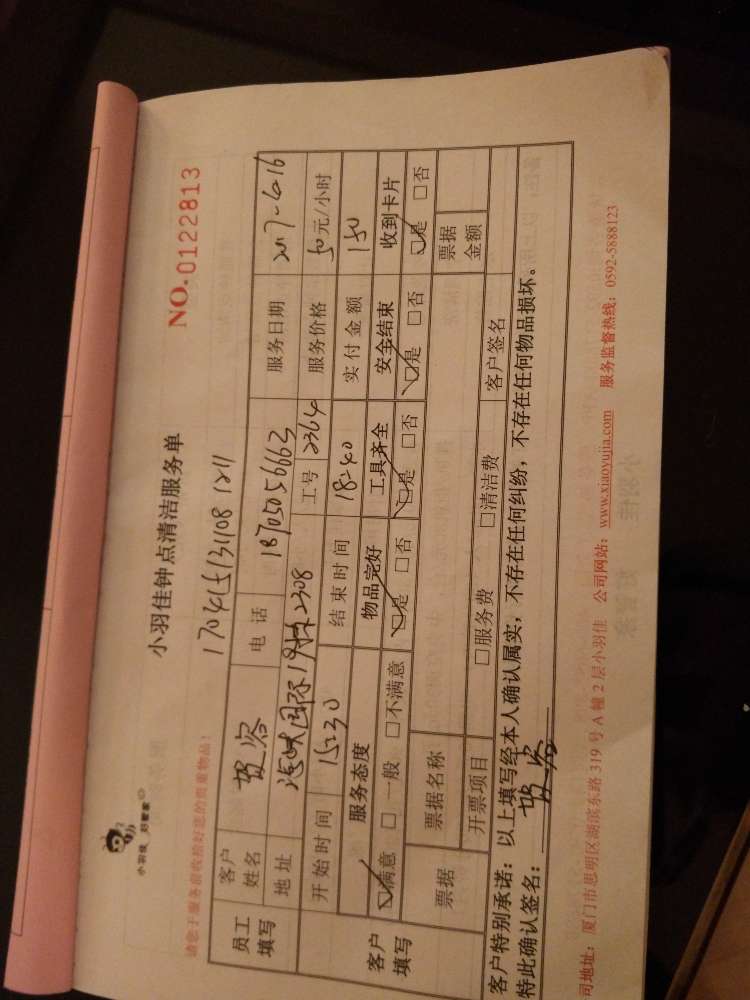 小羽佳 好管家
小羽佳钟点清洁服务单
NO.0122813
请您于服务前收检好您的贵重物品!
员工填写
客户姓名
电话 18705056663
服务日期
地址 海峡国际
2308
工号 2364
服务价格 50元/小时
开始时间 15:30
结束时间 18:40
实付金额 150
客户填写
服务态度 物品完好 工具齐全 安全结束 收到卡片
☑满意 □一般 □不满意 ☑是 □否 ☑是 □否 ☑是 □否 ☑是 □否
票据
票据名称
票据金额
开票项目 □服务费 □清洁费
客户签名
客户特别承诺:以上填写经本人确认属实,不存在任何纠纷,不存在任何物品损坏。
特此确认签名:
司地址:厦门市思明区湖滨东路319号A幢2层小羽佳 公司网站:www.xiaoyujia.com 服务监督热线:0592-5888123